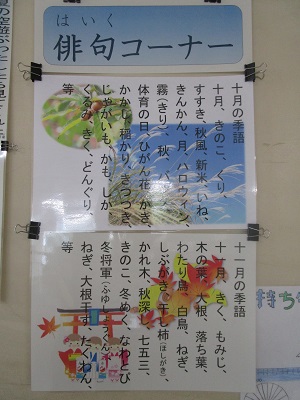 はいく
俳句コーナー
十月の季語
十月、きのこ、くり、
すすき、秋風、新米、いね、
きんかん、月、ハロウィン、
霧(きり)、秋、
体育の日、ひがん花、かき、
かかし、稲かり、きつつき、
じゃがいも、かも、しか、
くるみ、きく、どんぐり、
等
十一月の季語
十一月、きく、もみじ、
木の葉、大根、落ち葉、
わたり鳥、白鳥、ねぎ、
しぶがき、干し柿(ほしがき)、
かれ木、秋深し、七五三、
きのこ、冬め、なわとび
冬将軍(ふゆしょうぐん)、
ねぎ、大根干す、たくわん、
等